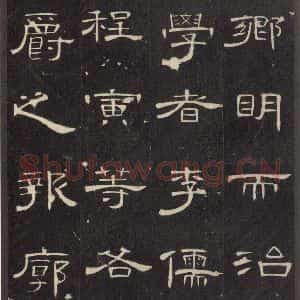 鄉明而治
學者李儒
程寅等各
爵之報廓
Shufawang.CN